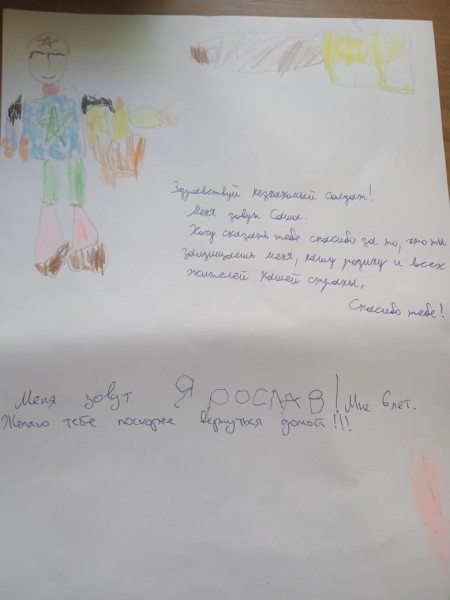 Здравствуй незнакомый солдат!
Меня зовут Саша.
Хочу сказать тебе спасибо за то, что ты
защищаешь меня, нашу родину и всех
жителей нашей страны.
Спасибо тебе!
Меня зовут ЯРОСЛАВ! Мне 6 лет.
Желаю тебе поскорее вернуться домой!!!